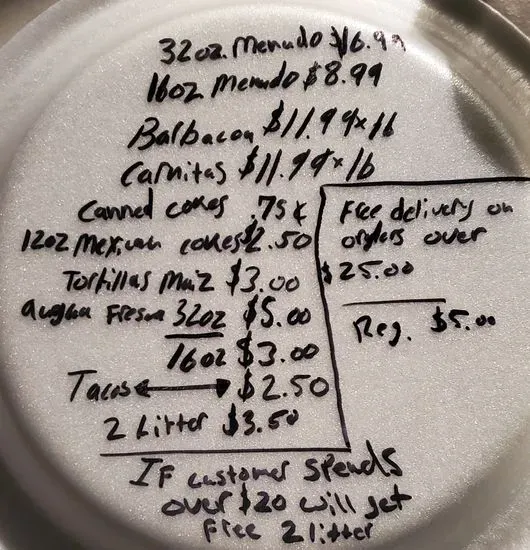 32oz. Menudo $16.99
16oz Menudo $8.99
Barbacoa $11.99 x lb
Carnitas $11.99 x lb
Canned cokes .75¢
12oz Mexican cokes $2.50
Tortillas Maiz $3.00
augua Fresca 32oz $5.00
16oz $3.00
Tacos $2.50
2 Litter $3.50
Free delivery on
orders over
$25.00
Reg. $5.00
IF customer spends
over $20 will get
Free 2 litter